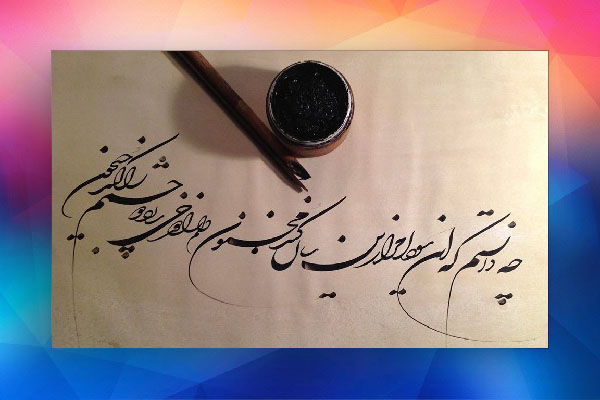 چه دانستم که این سودا مرا زین سان کند مجنون دلم را دوزخی سازد دو چشمم را کند جیحون